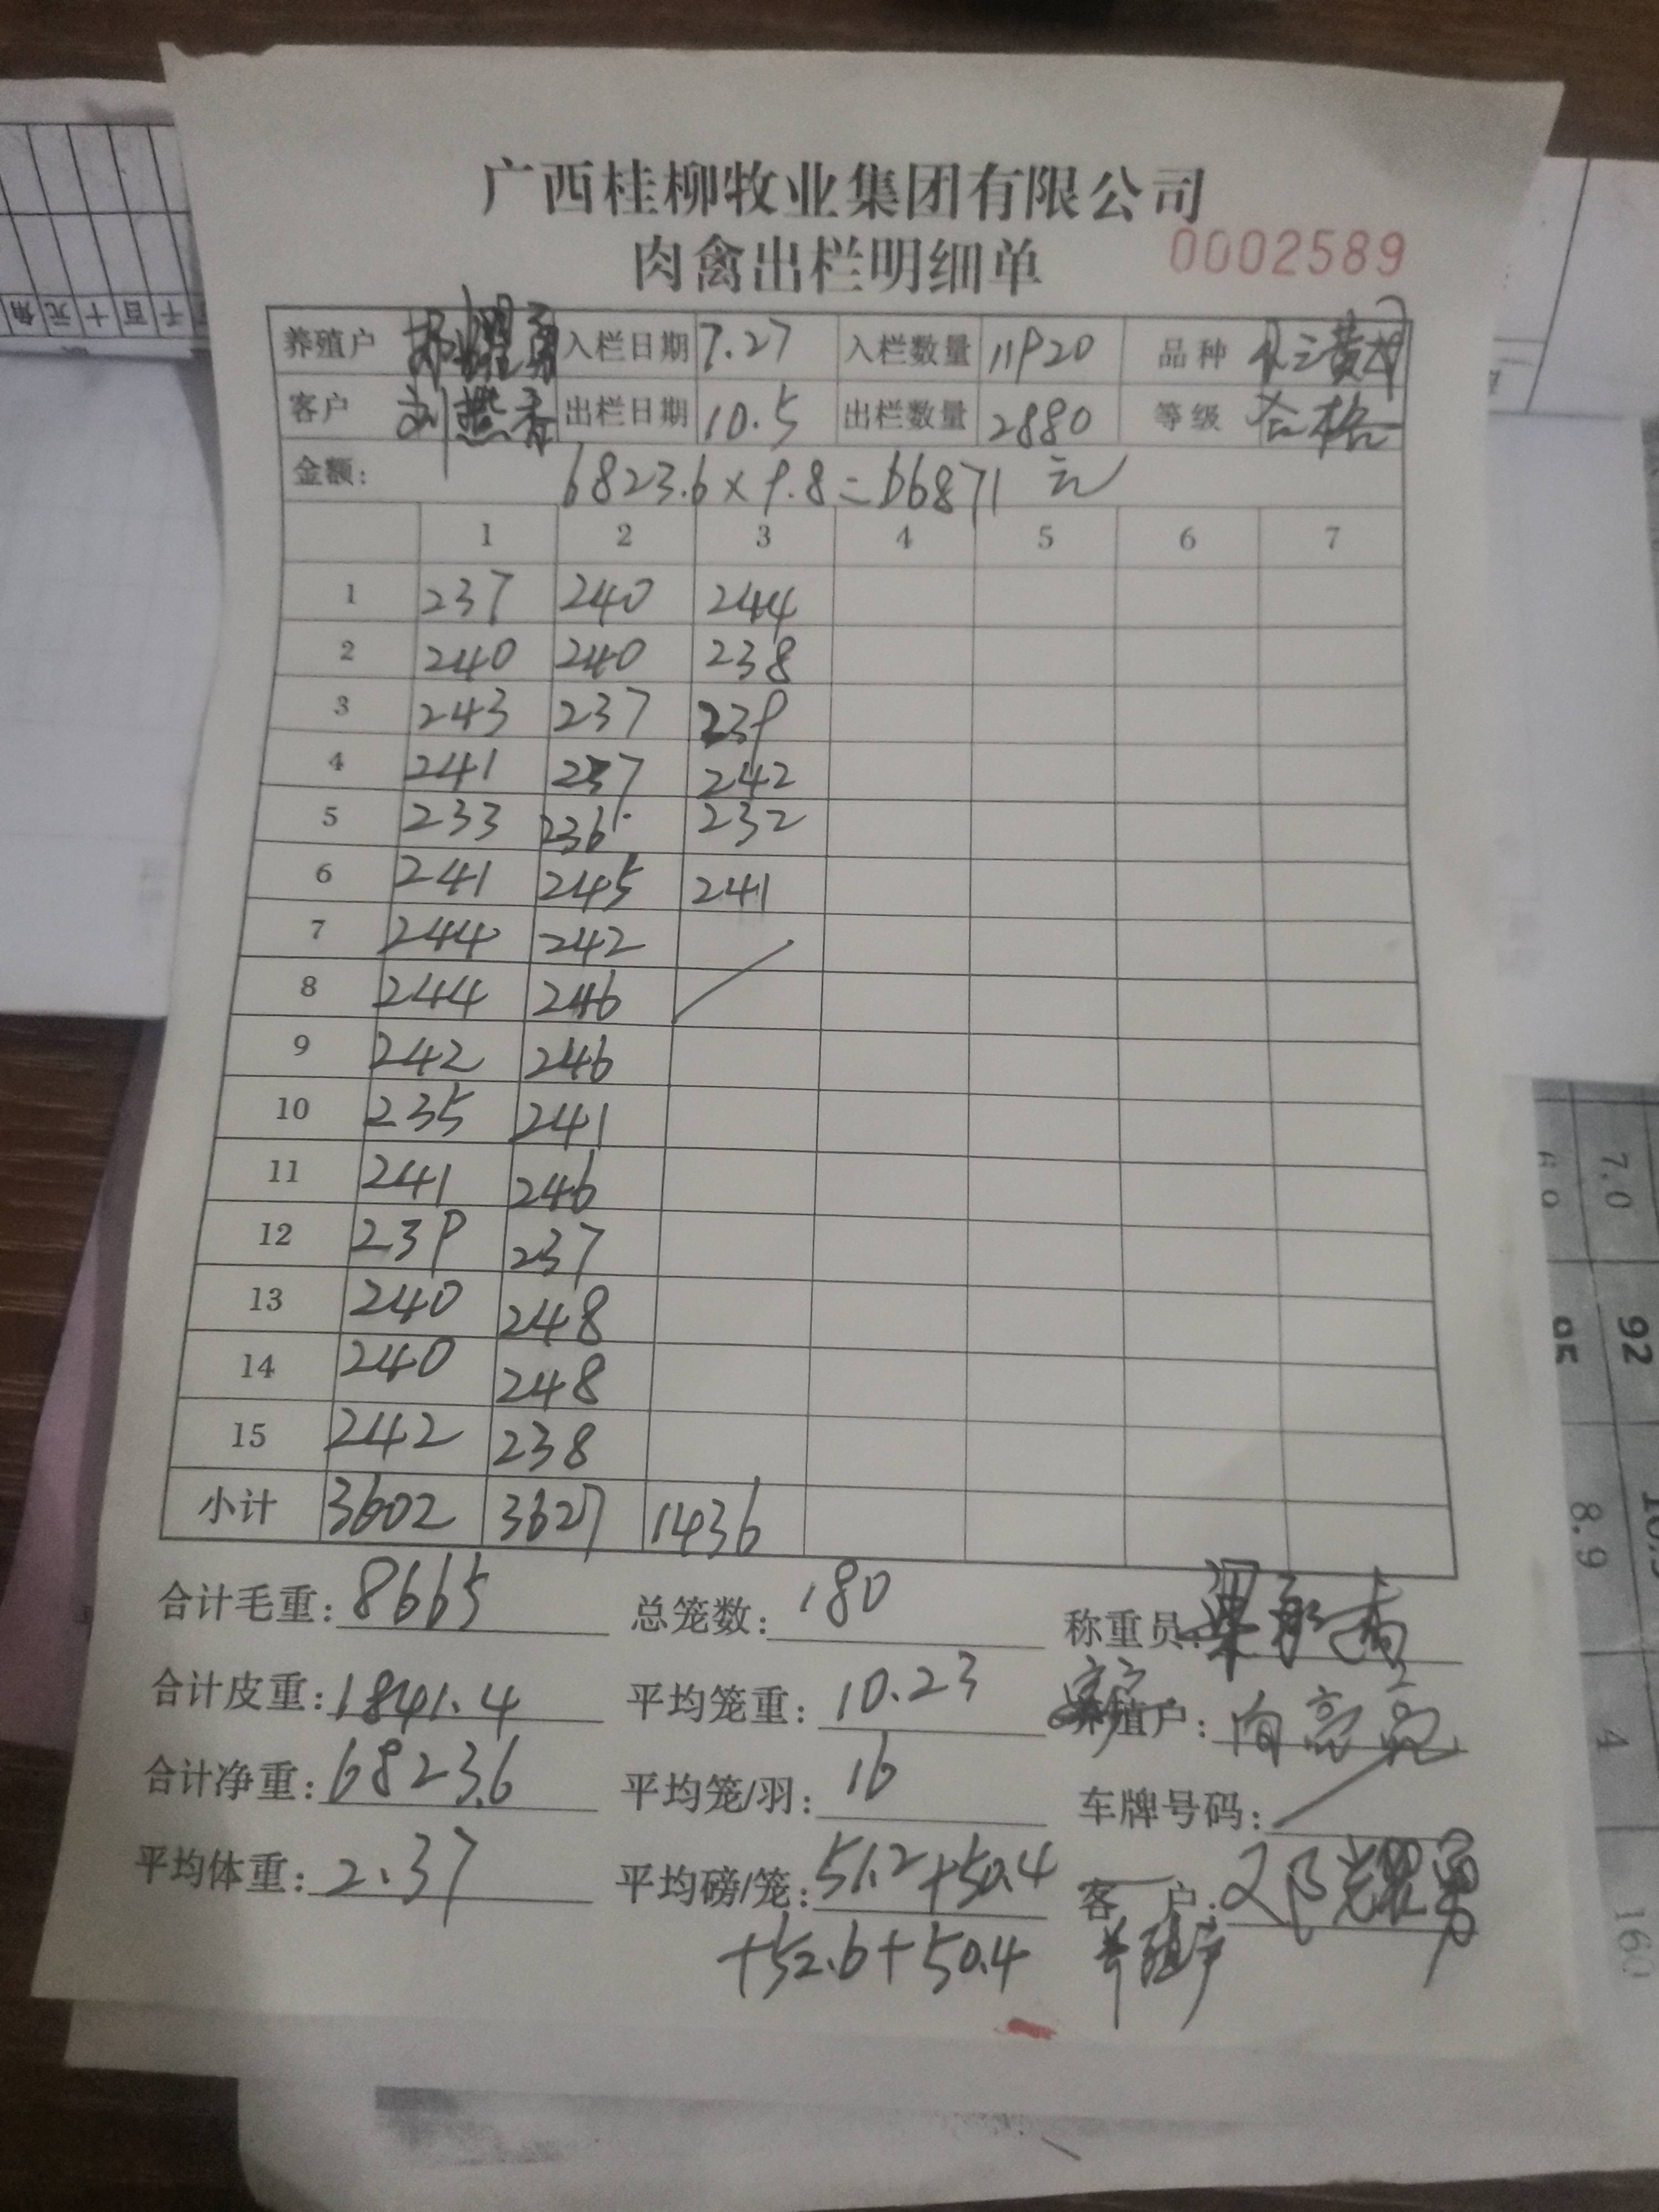 广西桂柳牧业集团有限公司
肉禽出栏明细单 0002589
养殖户 入栏日期 7.27 入栏数量 11920 品种
客户 刘燕青 出栏日期 10.5 出栏数量 2880 等级 合格
金额: 6823.6×9.8=66871元
1 2 3 4 5 6 7
1 237 240 244
2 240 240 238
3 243 237 239
4 241 237 242
5 233 236 232
6 241 245 241
7 244 242
8 244 246
9 242 246
10 235 241
11 241 246
12 239 237
13 240 248
14 240 248
15 242 238
小计 3602 3627 1436
合计毛重: 8665 总笼数: 180 称重员:
合计皮重: 1841.4 平均笼重: 10.23 养殖户: 向亮亮
合计净重: 6823.6 平均笼/羽: 16 车牌号码:
平均体重: 2.37 平均磅/笼: 51.2+50.4 客户:
+52.6+50.4 养殖户
7.0
92
8.9
4
160
角 元 十 百 千